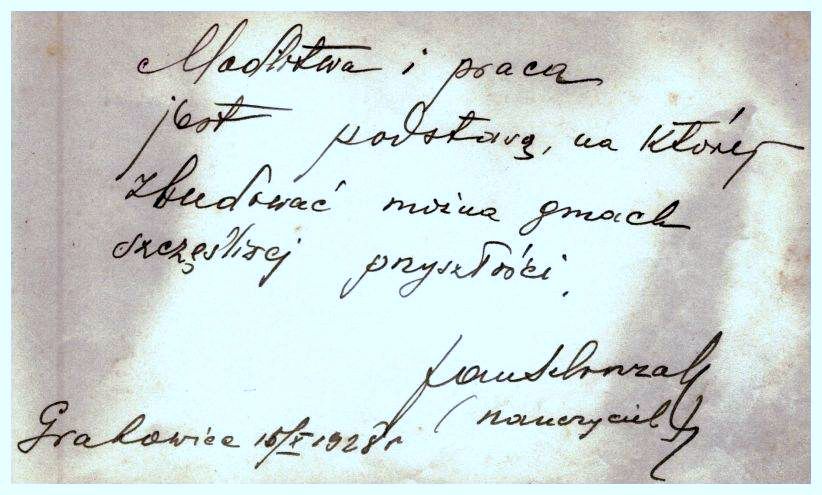 Modlitwa i praca
jest podstawą, na której
zbudować można gmach
szczęśliwej przyszłości.
Jan
(nauczyciel)
Grakowice 15/X 1928 r